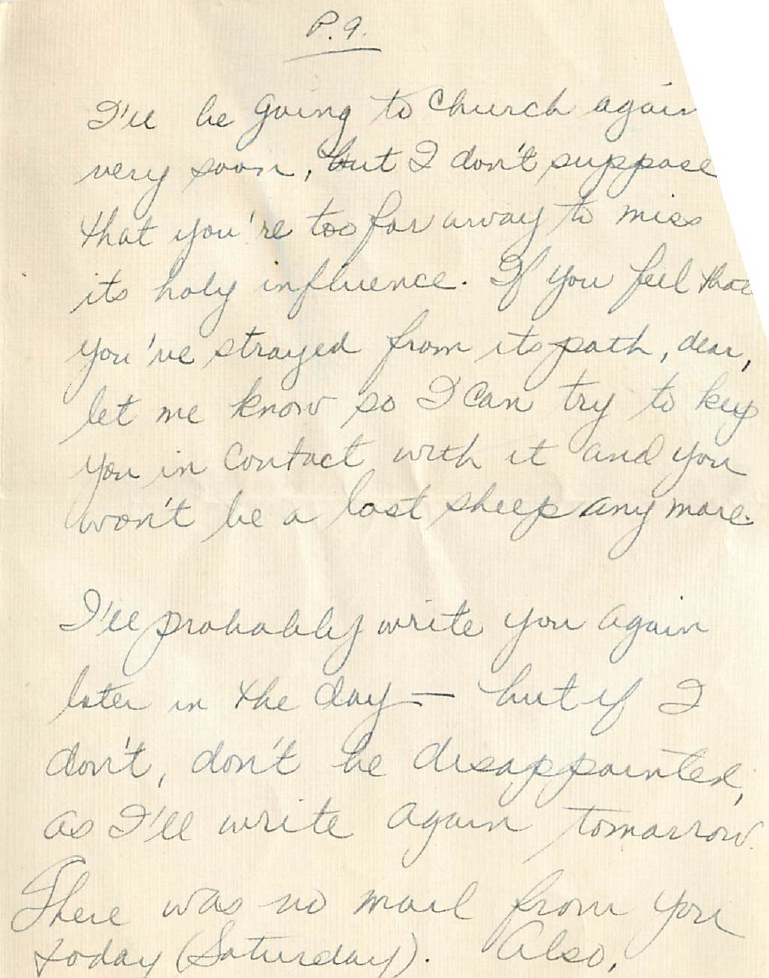 P.9.
I'll be going to Church again
very soon, but I don't suppose
that you're too far away to miss
its holy influence. If you feel that
you've strayed from its path, dear,
let me know so I can try to keep
you in contact with it and you
won't be a lost sheep any more.
I'll probably write you again
later in the day — but if I
don't, don't be disappointed,
as I'll write again tomorrow.
There was no mail from you
today (Saturday). Also,